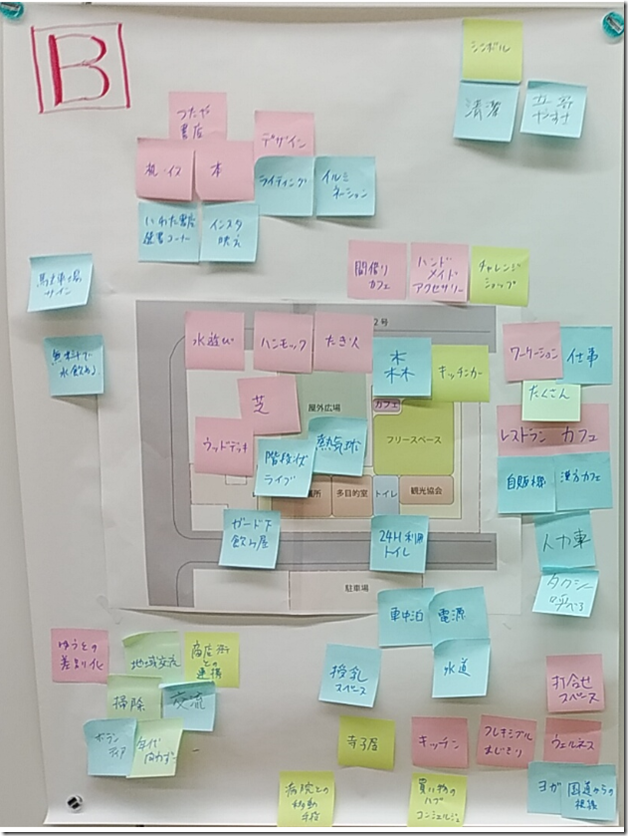 B
シンボル
清潔
立ち寄り
やすさ
つたや
書店
デザイン
机・イス
本
ライティング
イルミ
ネーション
いわた書店
選書コーナー
インスタ
映え
間借り
カフェ
ハンド
メイド
アクセサリー
チャレンジ
ショップ
駐車場
サイン
無料で
水飲める
2号
水遊び
ハンモック
たき火
木
森
キッチンカー
ワーケーション
仕事
たくさん
芝
屋外広場
カフェ
レストラン カフェ
フリースペース
ウッドデッキ
階段状
ライブ
熱気球
自販機
漢方カフェ
務所
多目的室
トイレ
観光協会
ガード下
飲み屋
24H利用
トイレ
人力車
タクシー
呼べる
駐車場
車中泊
電源
水道
授乳
スペース
打合せ
スペース
地域交流
商店街
との
連携
掃除
交流
ボラン
ティア
年代
問わず
寺子屋
キッチン
フレキシブル
まじきり
ウェルネス
病院との
移動
手段
買い物の
ハブ
コンシェルジュ
ヨガ
国道からの